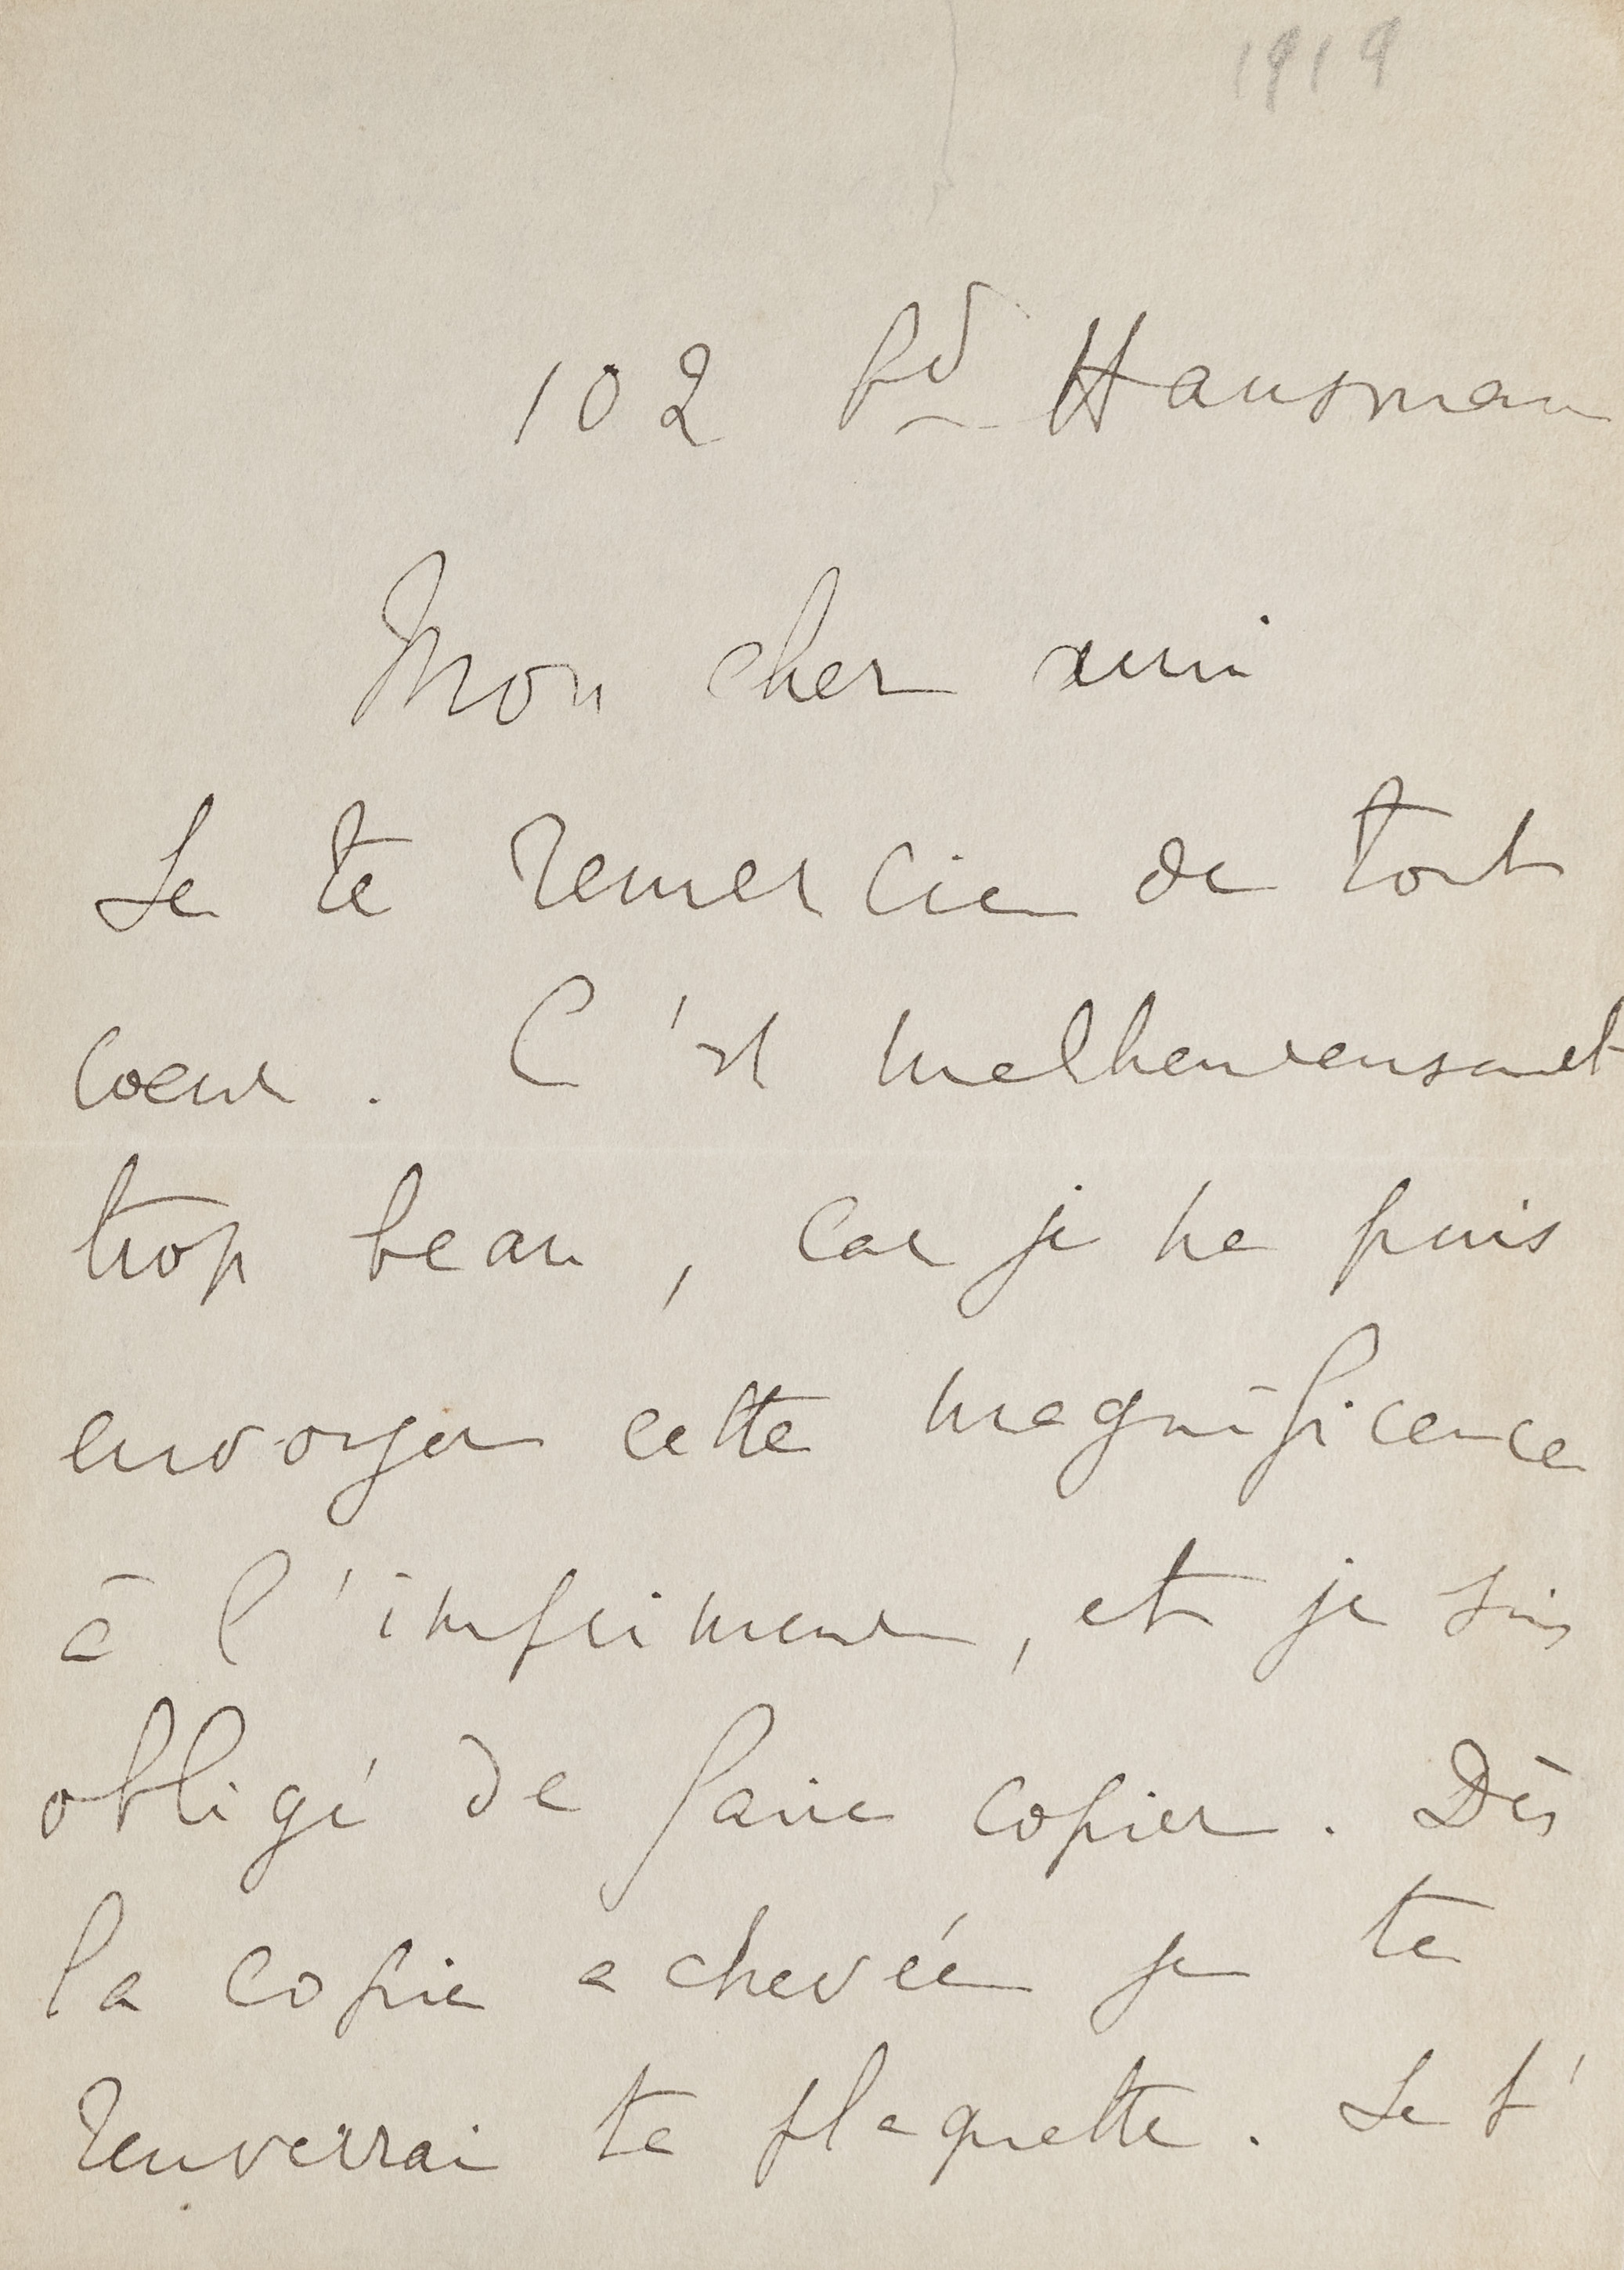 1919
102 bd Hausmann
Mon cher ami
Je te remercie de tout
coeur. C'est malheureusement
trop beau, car je ne puis
envoyer cette magnificence
à l'imprimeur, et je suis
obligé de faire copier. Dès
la copie achevée je te
renverrai ta plaquette. Je t'